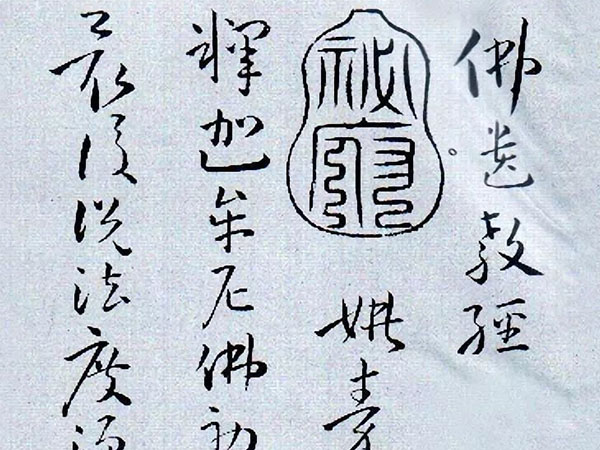 佛遺教經
祕府
姚秦
釋迦牟尼佛初
最後說法度須